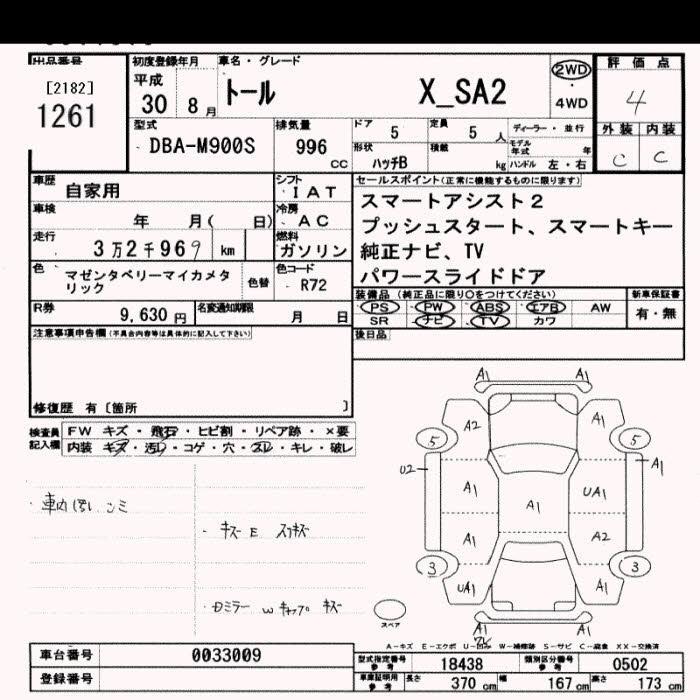 出品番号 初度登録年月 車名・グレード 評価点
[2182] 平成 トール X_SA2 2WD 4
1261 30 8月 4WD
型式 排気量 ドア 5 定員 5人 ディーラー・並行 外装 内装
DBA-M900S 996 cc 形状 ハッチB 積載 kg モデル年式 年 C C
ハンドル 左・右
車歴 自家用 シフト IAT セールスポイント(正常に機能するものに限ります)
車検 年 月( 日) 冷房 AC スマートアシスト2
走行 3万2千969 km 燃料 ガソリン プッシュスタート、スマートキー
純正ナビ、TV
色 マゼンタベリーマイカメタリック 色替 色コード R72 パワースライドドア
R券 9,630円 名変通知期限 月 日 装備品 (純正品に限り○をつけてください) 新車保証書
PS PW ABS エアB AW 有・無
SR ナビ TV カワ
注意事項申告欄(不具合内容等は具体的に記入して下さい) 後日品
修復歴 有〔箇所 〕
検査員記入欄 FW キズ・飛石・ヒビ割・リペア跡・×要
内装 キズ・汚レ・コゲ・穴・スレ・キレ・破レ
A1 A1
A2 A1
5 5
U2 A1
A1 UA1
A1
A1 A2
3 3
UA1 A1
A1 A1
スペア
A-キズ E-エクボ U-凹み W-補修跡 S-サビ C-腐食 XX-交換済
車台番号 0033009
登録番号
型式指定番号 参考 18438 類別区分番号 参考 0502
車庫証明用 参考 長さ 370 cm 幅 167 cm 高さ 173 cm